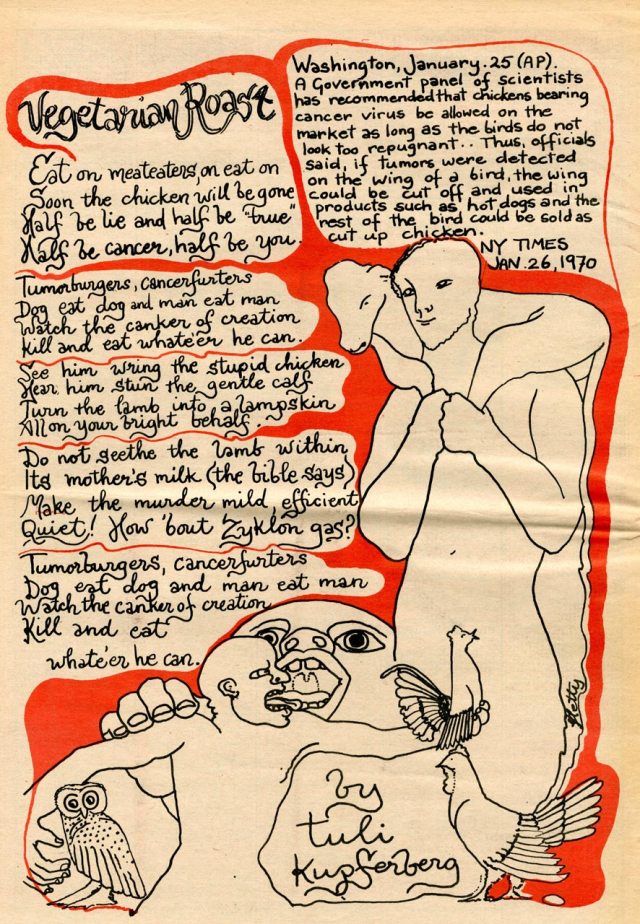 Vegetarian Roast
Eat on meateaters, on eat on
Soon the chicken will be gone
Half be lie and half be "true"
Half be cancer, half be you.
Tumorburgers, cancerfurters
Dog eat dog and man eat man
Watch the canker of creation
Kill and eat whate'er he can.
See him wring the stupid chicken
Hear him stun the gentle calf
Turn the lamb into a lampskin
All on your bright behalf.
Do not seethe the lamb within
Its mother's milk (the bible says)
Make the murder mild, efficient
Quiet! How 'bout Zyklon gas?
Tumorburgers, cancerfurters
Dog eat dog and man eat man
Watch the canker of creation
Kill and eat
whate'er he can.
Washington, January. 25 (AP).
A Government panel of scientists
has recommended that chickens bearing
cancer virus be allowed on the
market as long as the birds do not
look too repugnant.. Thus, officials
said, if tumors were detected
on the wing of a bird, the wing
could be cut off and used in
products such as hot dogs and the
rest of the bird could be sold as
cut up chicken.
NY TIMES
JAN. 26, 1970
Hetty
by
tuli
Kupferberg